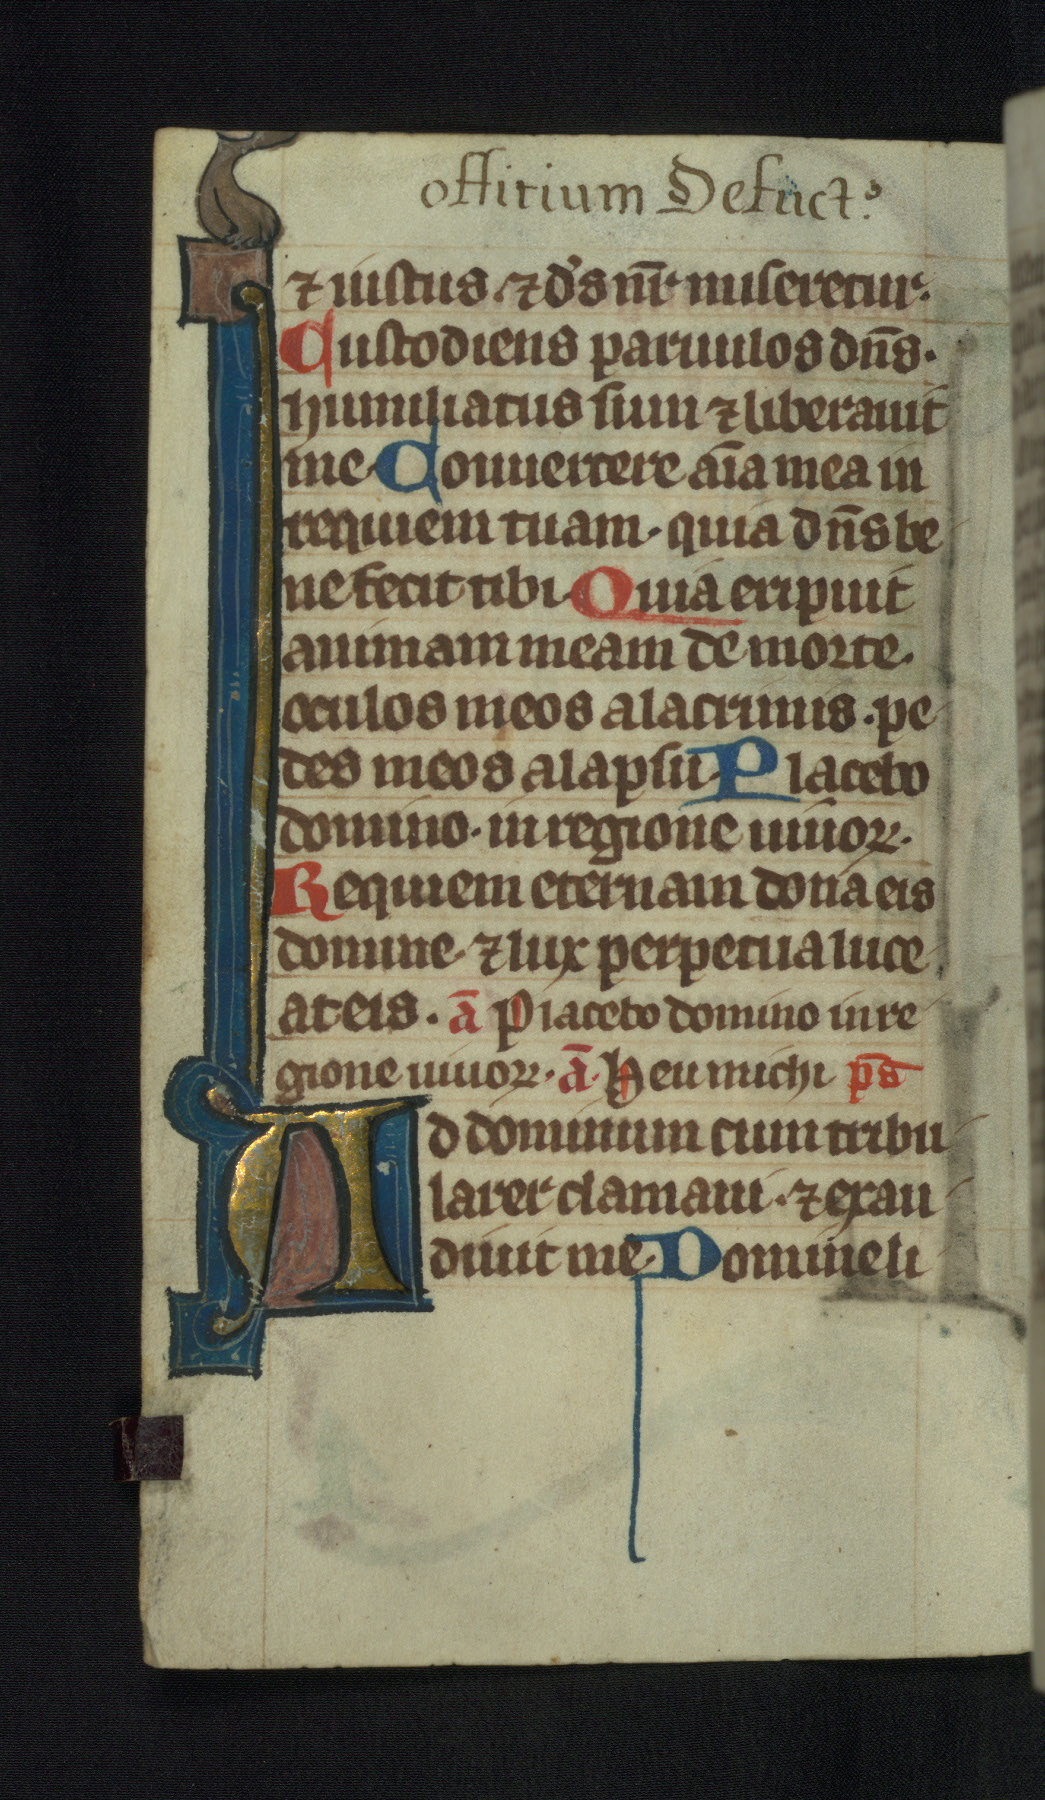 offitium Defūct.ͻ
⁊ iustus. ⁊ dͤs nr̄ miseretur.
Custodiens paruulos dn̄s.
humiliatus sum ⁊ liberauit
me. Conuertere aīa mea in
requiem tuam. quia dn̄s be
ne fecit tibi. Quia eripuit
animam meam de morte.
oculos meos a lacrimis. pe
des meos a lapsu. Placebo
domino. in regione uiuoꝝ.
Requiem eternam dona eis
domine. ⁊ lux perpetua luce
at eis. ā Placebo domino in re
gione uiuoꝝ. ā. Heu michi p̄s
Ad dominum cum tribu
larer clamaui. ⁊ exau
diuit me. Domine li